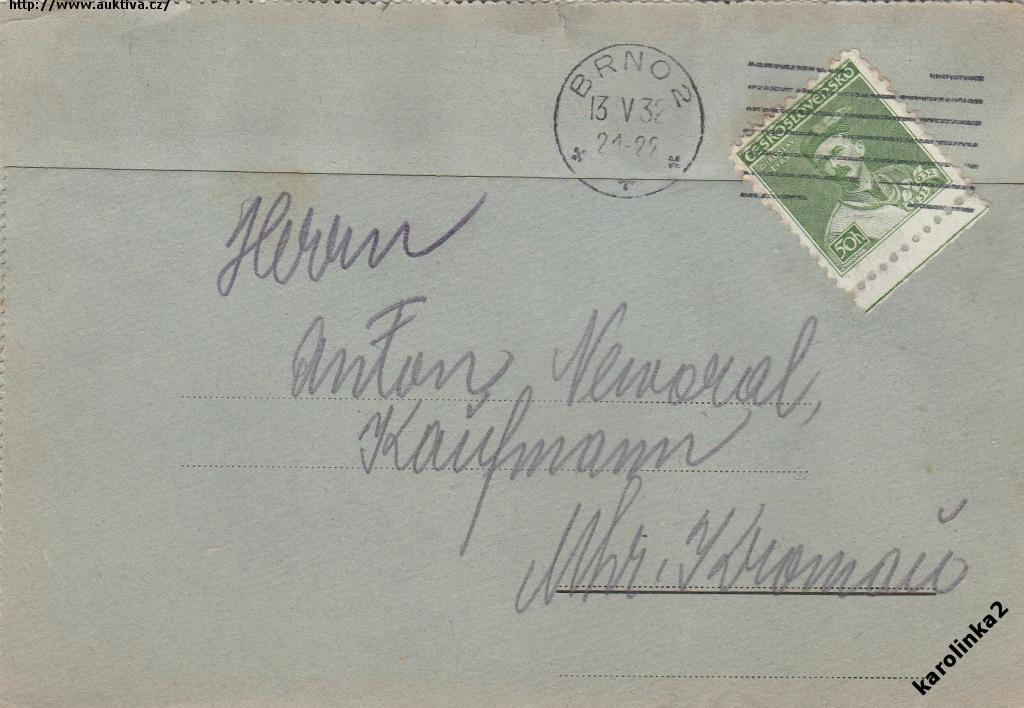 http://www.auktiva.cz/
BRNO 2
13 V 32
21-22
ČESKOSLOVENSKO
1832
50h
Herrn
Anton Neworal,
Kaufmann
Mhr. Kromau
karolinka2